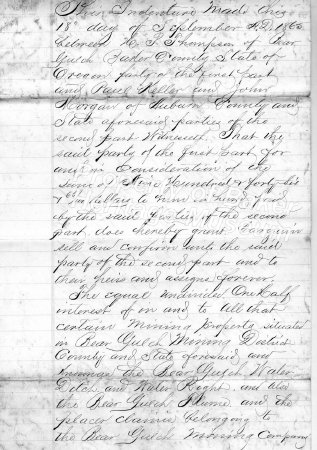 This Indenture Made this
18th day of September A.D. 1865
between H. S. Thompson of Bear
Gulch Baker County State of
Oregon party of the first part
and Paul Keller and John
Morgan of Auburn County and
State aforesaid parties of the
second part Witnesseth, That the
said party of the first part for
and in Consideration of the
Sum of Five Hundred & forty six
Dollars to him in hand paid
by the said Parties of the second
part, does hereby grant bargain
sell and confirm unto the said
party of the second part and to
their heirs and assigns forever
The equal undivided One half
interest of in and to all that
certain Mining Property situated
in Bear Gulch Mining District
County and State aforesaid and
known as the Bear Gulch Water
Ditch and Water Right, and also
the Bear Gulch Flume and the
placer claims belonging to
the Bear Gulch Mining Company